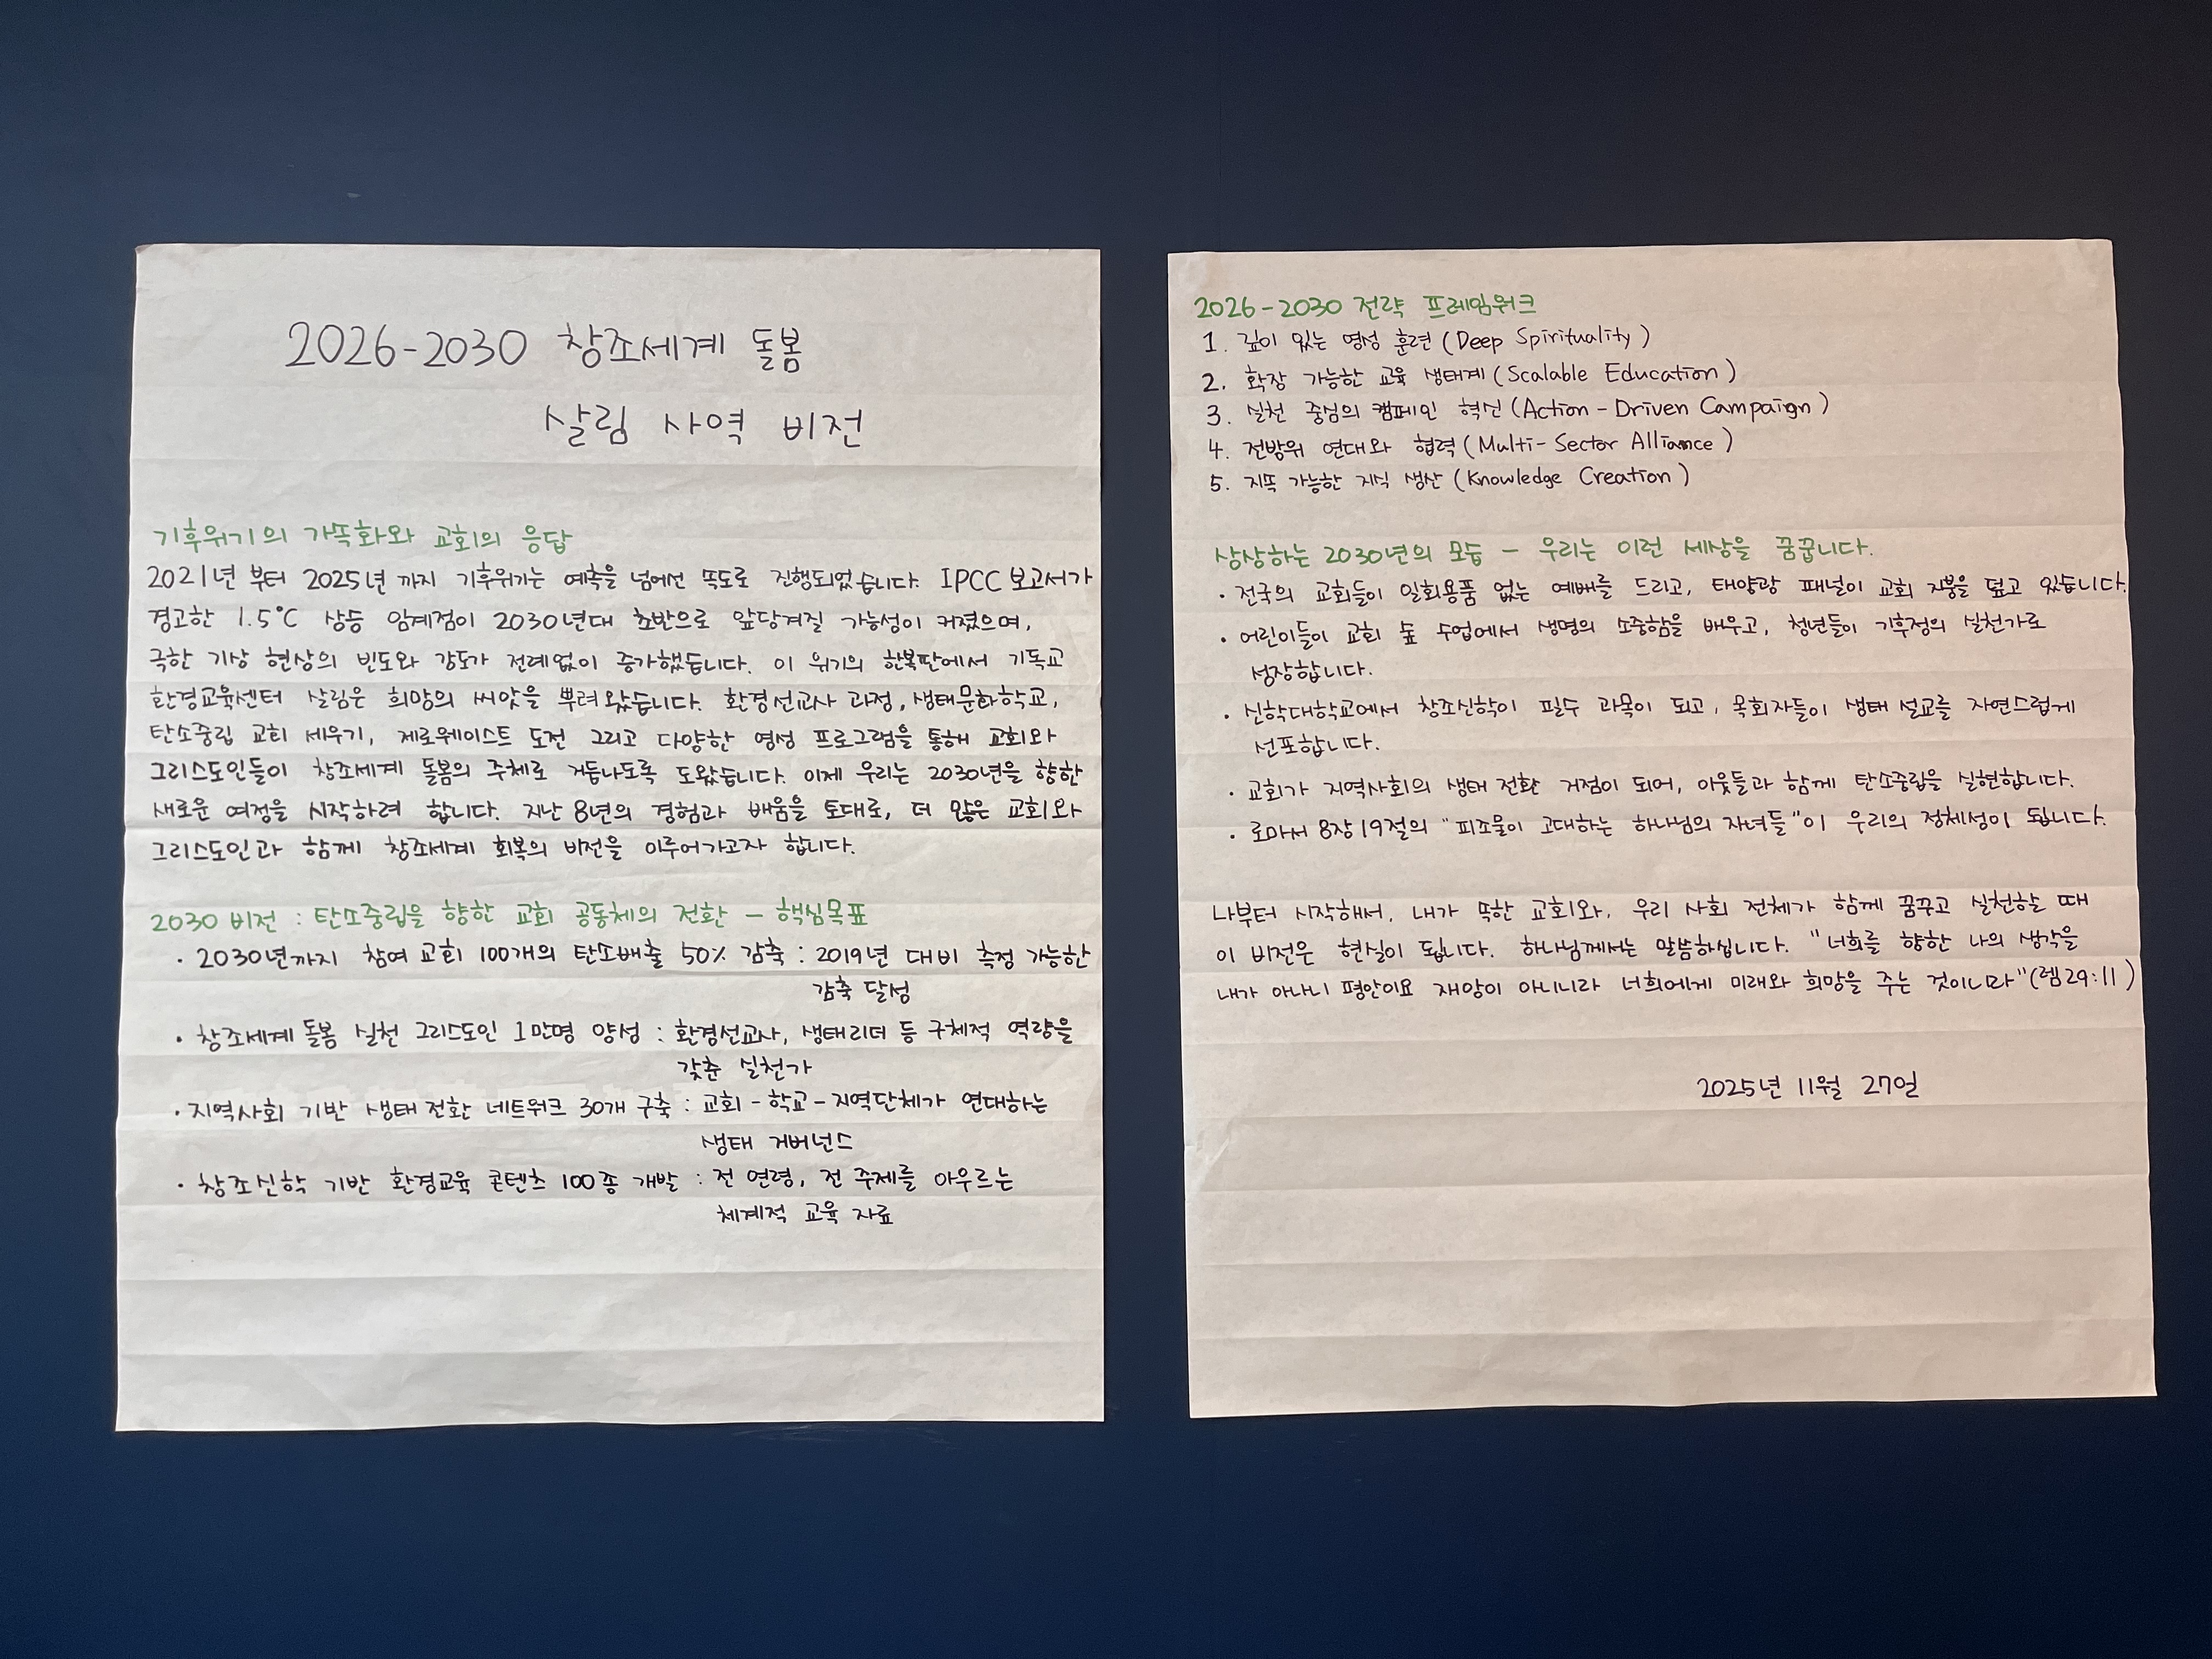 2026-2030 창조세계 돌봄
살림 사역 비전
기후위기의 가속화와 교회의 응답
2021년 부터 2025년 까지 기후위기는 예측을 넘어선 속도로 진행되었습니다. IPCC 보고서가
경고한 1.5℃ 상승 임계점이 2030년대 초반으로 앞당겨질 가능성이 커졌으며,
극한 기상 현상의 빈도와 강도가 전례없이 증가했습니다. 이 위기의 한복판에서 기독교
환경교육센터 살림은 희망의 씨앗을 뿌려왔습니다. 환경선교사 과정, 생태문화학교,
탄소중립 교회 세우기, 제로웨이스트 도전 그리고 다양한 영성 프로그램을 통해 교회와
그리스도인들이 창조세계 돌봄의 주체로 거듭나도록 도왔습니다. 이제 우리는 2030년을 향한
새로운 여정을 시작하려 합니다. 지난 8년의 경험과 배움을 토대로, 더 많은 교회와
그리스도인과 함께 창조세계 회복의 비전을 이루어가고자 합니다.
2030 비전 : 탄소중립을 향한 교회 공동체의 전환 - 핵심목표
· 2030년까지 참여 교회 100개의 탄소배출 50% 감축 : 2019년 대비 측정 가능한
감축 달성
· 창조세계 돌봄 실천 그리스도인 1만명 양성 : 환경선교사, 생태리더 등 구체적 역량을
갖춘 실천가
· 지역사회 기반 생태 전환 네트워크 30개 구축 : 교회-학교-지역단체가 연대하는
생태 거버넌스
· 창조신학 기반 환경교육 콘텐츠 100종 개발 : 전 연령, 전 주제를 아우르는
체계적 교육 자료
2026-2030 전략 프레임워크
1. 깊이 있는 영성 훈련 (Deep Spirituality)
2. 확장 가능한 교육 생태계 (Scalable Education)
3. 실천 중심의 캠페인 혁신 (Action-Driven Campaign)
4. 전방위 연대와 협력 (Multi-Sector Alliance)
5. 지속 가능한 지식 생산 (Knowledge Creation)
상상하는 2030년의 모습 - 우리는 이런 세상을 꿈꿉니다.
· 전국의 교회들이 일회용품 없는 예배를 드리고, 태양광 패널이 교회 지붕을 덮고 있습니다.
· 어린이들이 교회 숲 수업에서 생명의 소중함을 배우고, 청년들이 기후정의 실천가로
성장합니다.
· 신학대학교에서 창조신학이 필수 과목이 되고, 목회자들이 생태 설교를 자연스럽게
선포합니다.
· 교회가 지역사회의 생태 전환 거점이 되어, 이웃들과 함께 탄소중립을 실현합니다.
· 로마서 8장 19절의 "피조물이 고대하는 하나님의 자녀들"이 우리의 정체성이 됩니다.
나부터 시작해서, 내가 속한 교회와, 우리 사회 전체가 함께 꿈꾸고 실천할 때
이 비전은 현실이 됩니다. 하나님께서는 말씀하십니다. "너희를 향한 나의 생각을
내가 아나니 평안이요 재앙이 아니니라 너희에게 미래와 희망을 주는 것이니라"(렘29:11)
2025년 11월 27일